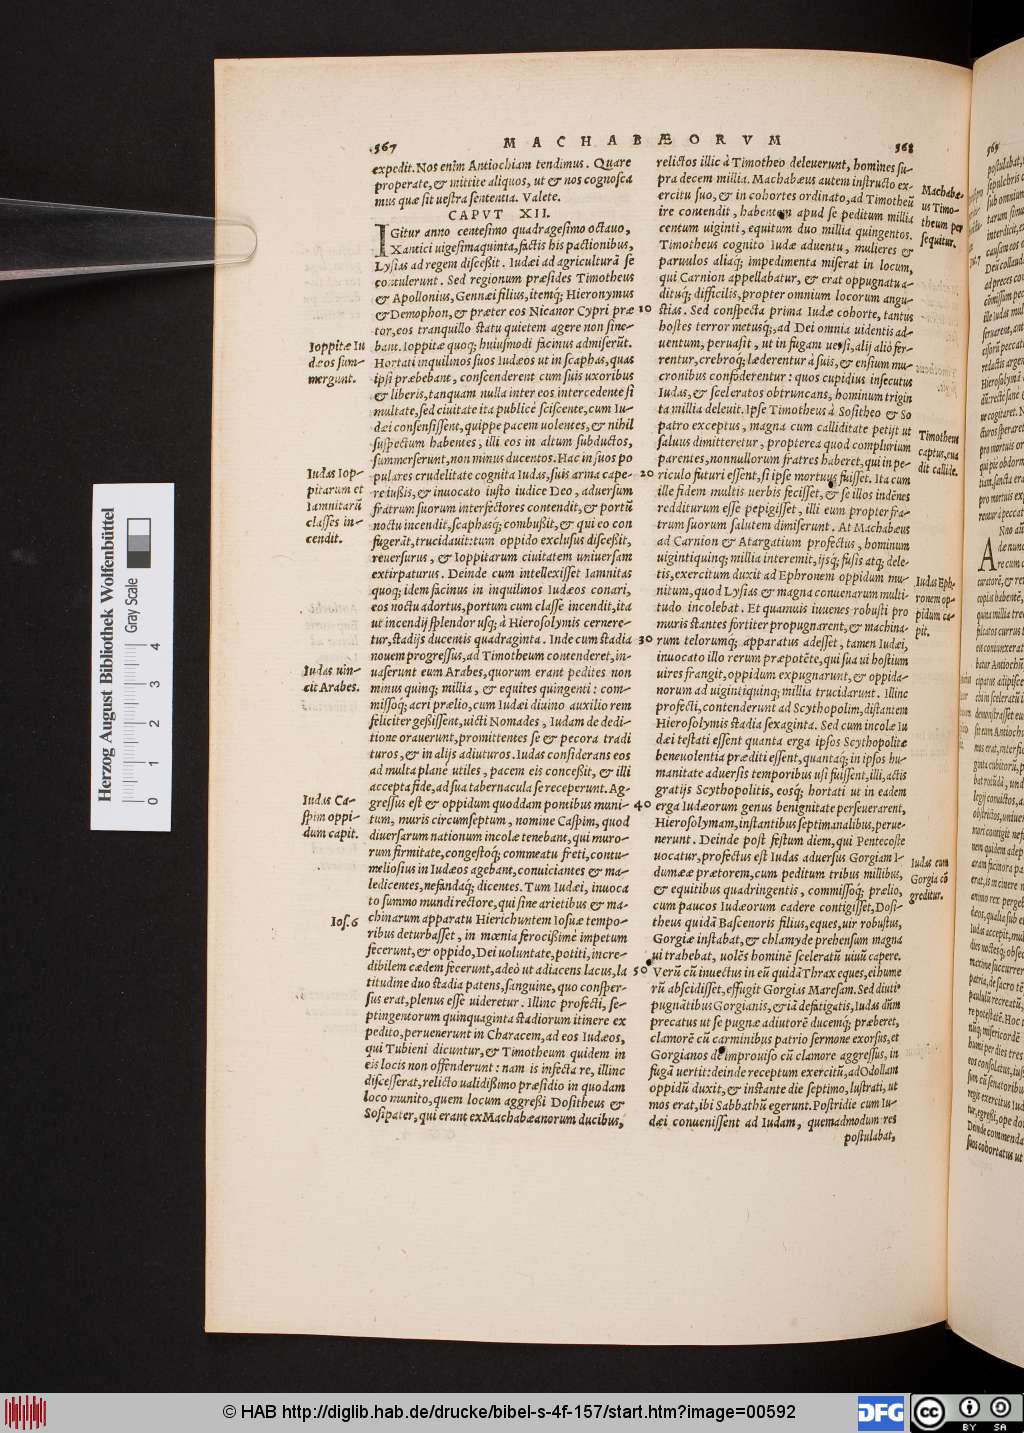 567
MACHABÆORVM
568
expedit. Nos enim̃ Antiochiam tendimus. Quare
properate, & mittite aliquos, ut & nos cognosca
mus quæ sit uestra sententia. Valete.
CAPVT XII.
IGitur anno centesimo quadragesimo octauo,
Xantici uigesimaquinta, factis his pactionibus,
Lysias ad regem discessit. Iudæi ad agriculturã se
contulerunt. Sed regionum præsides Timotheus
& Apollonius, Gennæi filius, itemq; Hieronymus
& Demophon, & præter eos Nicanor Cypri præ
tor, eos tranquillo statu quietem agere non sine-
bant. Ioppitæ quoq; huiusmodi facinus admiserũt.
Hortati inquilinos suos Iudæos ut in scaphas, quas
ipsi præbebant, conscenderent cum suis uxoribus
& liberis, tanquam nulla inter eos intercedente si
multate, sed ciuitate ita publicè sciscente, cum Iu-
dæi consensissent, quippe pacem uolentes, & nihil
suspectum habentes, illi eos in altum subductos,
summerserunt, non minus ducentos. Hac in suos po
pulares crudelitate cognita Iudas, suis arma cape-
re iussis, & inuocato iusto iudice Deo, aduersum
fratrum suorum interfectores contendit, & portũ
noctu incendit, scaphasq; combussit, & qui eo con
fugerãt, trucidauit: tum oppido exclusus discessit,
reuersurus, & Ioppitarum ciuitatem uniuersam
extirpaturus. Deinde cum intellexisset Iamnitas
quoq; idem facinus in inquilinos Iudæos conari,
eos noctu adortus, portum cum classe incendit, ita
ut incendij splendor usq; à Hierosolymis cernere-
tur, stadijs ducentis quadraginta. Inde cum stadia
nouem progressus, ad Timotheum contenderet, in-
uaserunt eum Arabes, quorum erant pedites non
minus quinq; millia, & equites quingenti: com-
missoq; acri prælio, cum Iudæi diuino auxilio rem
feliciter gessissent, uicti Nomades, Iudam de dedi-
tione orauerunt, promittentes se & pecora tradi
turos, & in alijs adiuturos. Iudas considerans eos
ad multa planè utiles, pacem eis concessit, & illi
accepta fide, ad sua tabernacula se receperunt. Ag-
gressus est & oppidum quoddam pontibus muni-
tum, muris circumseptum, nomine Caspim, quod
diuersarum nationum incolæ tenebant, qui muro-
rum firmitate, congestoq; commeatu freti, contu-
meliosius in Iudæos agebant, conuiciantes & ma-
ledicentes, nefandaq; dicentes. Tum Iudæi, inuoca
to summo mundi rectore, qui sine arietibus & ma-
chinarum apparatu Hierichuntem Iosuæ tempo-
ribus deturbasset, in mœnia ferocissimè impetum
fecerunt, & oppido, Dei uoluntate, potiti, incre-
dibilem cædem fecerunt, adeò ut adiacens lacus, la
titudine duo stadia patens, sanguine, quo consper-
sus erat, plenus esse uideretur. Illinc profecti, se-
ptingentorum quinquaginta stadiorum itinere ex
pedito, peruenerunt in Characem, ad eos Iudæos,
qui Tubieni dicuntur, & Timotheum quidem in
eis locis non offenderunt: nam is infecta re, illinc
discesserat, relicto ualidissimo præsidio in quodam
loco munito, quem locum aggressi Dositheus &
Sosipater, qui erant ex Machabæanorum ducibus,
Ioppitæ Iu
dæos sum-
mergunt.
Iudas Iop-
pitarum et
Iamnitarũ
classes in-
cendit.
Iudas uin-
cit Arabes.
Iudas Ca-
spim oppi-
dum capit.
Ios. 6
10
20
30
40
50
relictos illic à Timotheo deleuerunt, homines su-
pra decem millia. Machabæus autem instructo ex-
ercitu suo, & in cohortes ordinato, ad Timotheũ
ire contendit, habentem apud se peditum millia
centum uiginti, equitum duo millia quingentos.
Timotheus cognito Iudæ aduentu, mulieres &
paruulos aliaq; impedimenta miserat in locum,
qui Carnion appellabatur, & erat oppugnatu a-
dituq; difficilis, propter omnium locorum angu-
stias. Sed conspecta prima Iudæ cohorte, tantus
hostes terror metusq;, ad Dei omnia uidentis ad-
uentum, peruasit, ut in fugam uersi, alij aliò fer-
rentur, crebroq; læderentur à suis, & ensium mu-
cronibus confoderentur: quos cupidius insecutus
Iudas, & sceleratos obtruncans, hominum trigin
ta millia deleuit. Ipse Timotheus à Sositheo & So
patro exceptus, magna cum calliditate petijt ut
saluus dimitteretur, propterea quod complurium
parentes, nonnullorum fratres haberet, qui in pe-
riculo futuri essent, si ipse mortuus fuisset. Ita cum
ille fidem multis uerbis fecisset, & se illos indẽnes
redditurum esse pepigisset, illi eum propter fra-
trum suorum salutem dimiserunt. At Machabæus
ad Carnion & Atargatium profectus, hominum
uigintiquinq; millia interemit, ijsq; fusis atq; dele-
tis, exercitum duxit ad Ephronem oppidum mu-
nitum, quod Lysias & magna conuenarum multi-
tudo incolebat. Et quamuis iuuenes robusti pro
muris stantes fortiter propugnarent, & machina-
rum telorumq; apparatus adesset, tamen Iudæi,
inuocato illo rerum præpotẽte, qui sua ui hostium
uires frangit, oppidum expugnarunt, & oppida-
norum ad uigintiquinq; millia trucidarunt. Illinc
profecti, contenderunt ad Scythopolim, distantem
Hierosolymis stadia sexaginta. Sed cum incolæ Iu
dæi testati essent quanta erga ipsos Scythopolitæ
beneuolentia præditi essent, quantaq; in ipsos hu-
manitate aduersis temporibus usi fuissent, illi, actis
gratijs Scythopolitis, eosq; hortati ut in eadem
erga Iudæorum genus benignitate perseuerarent,
Hierosolymam, instantibus septimanalibus, perue-
nerunt. Deinde post festum diem, qui Pentecoste
uocatur, profectus est Iudas aduersus Gorgiam I-
dumææ prætorem, cum peditum tribus millibus,
& equitibus quadringentis, commissoq; prælio,
cum paucos Iudæorum cadere contigisset, Dosi-
theus quidã Bascenoris filius, eques, uir robustus,
Gorgiæ instabat, & chlamyde prehensum magna
ui trahebat, uolẽs hominẽ sceleratũ uiuũ capere.
Verũ cũ inuectus in eũ quidã Thrax eques, ei hume
rũ abscidisset, effugit Gorgias Maresam. Sed diuti⁹
pugnãtibus Gorgianis, & iã defatigatis, Iudas dñm
precatus ut se pugnæ adiutorẽ ducemq; præberet,
clamorẽ cũ carminibus patrio sermone exorsus, et
Gorgianos de improuiso cũ clamore aggressus, in
fugã uertit: deinde receptum exercitũ, ad Odollam
oppidũ duxit, & instante die septimo, lustrati, ut
mos erat, ibi Sabbathũ egerunt. Postridie cum Iu-
dæi conuenissent ad Iudam, quemadmodum res
postulabat,
Machabæ-
us Timo-
theum per
sequitur.
Timotheus
captus, eua
dit callide.
Iudas Eph-
ronem op-
pidum ca-
pit.
Iudas cum
Gorgia cõ
greditur.
569
Herzog August Bibliothek Wolfenbüttel
Gray Scale
0 1 2 3 4
© HAB http://diglib.hab.de/drucke/bibel-s-4f-157/start.htm?image=00592
DFG
cc
BY SA